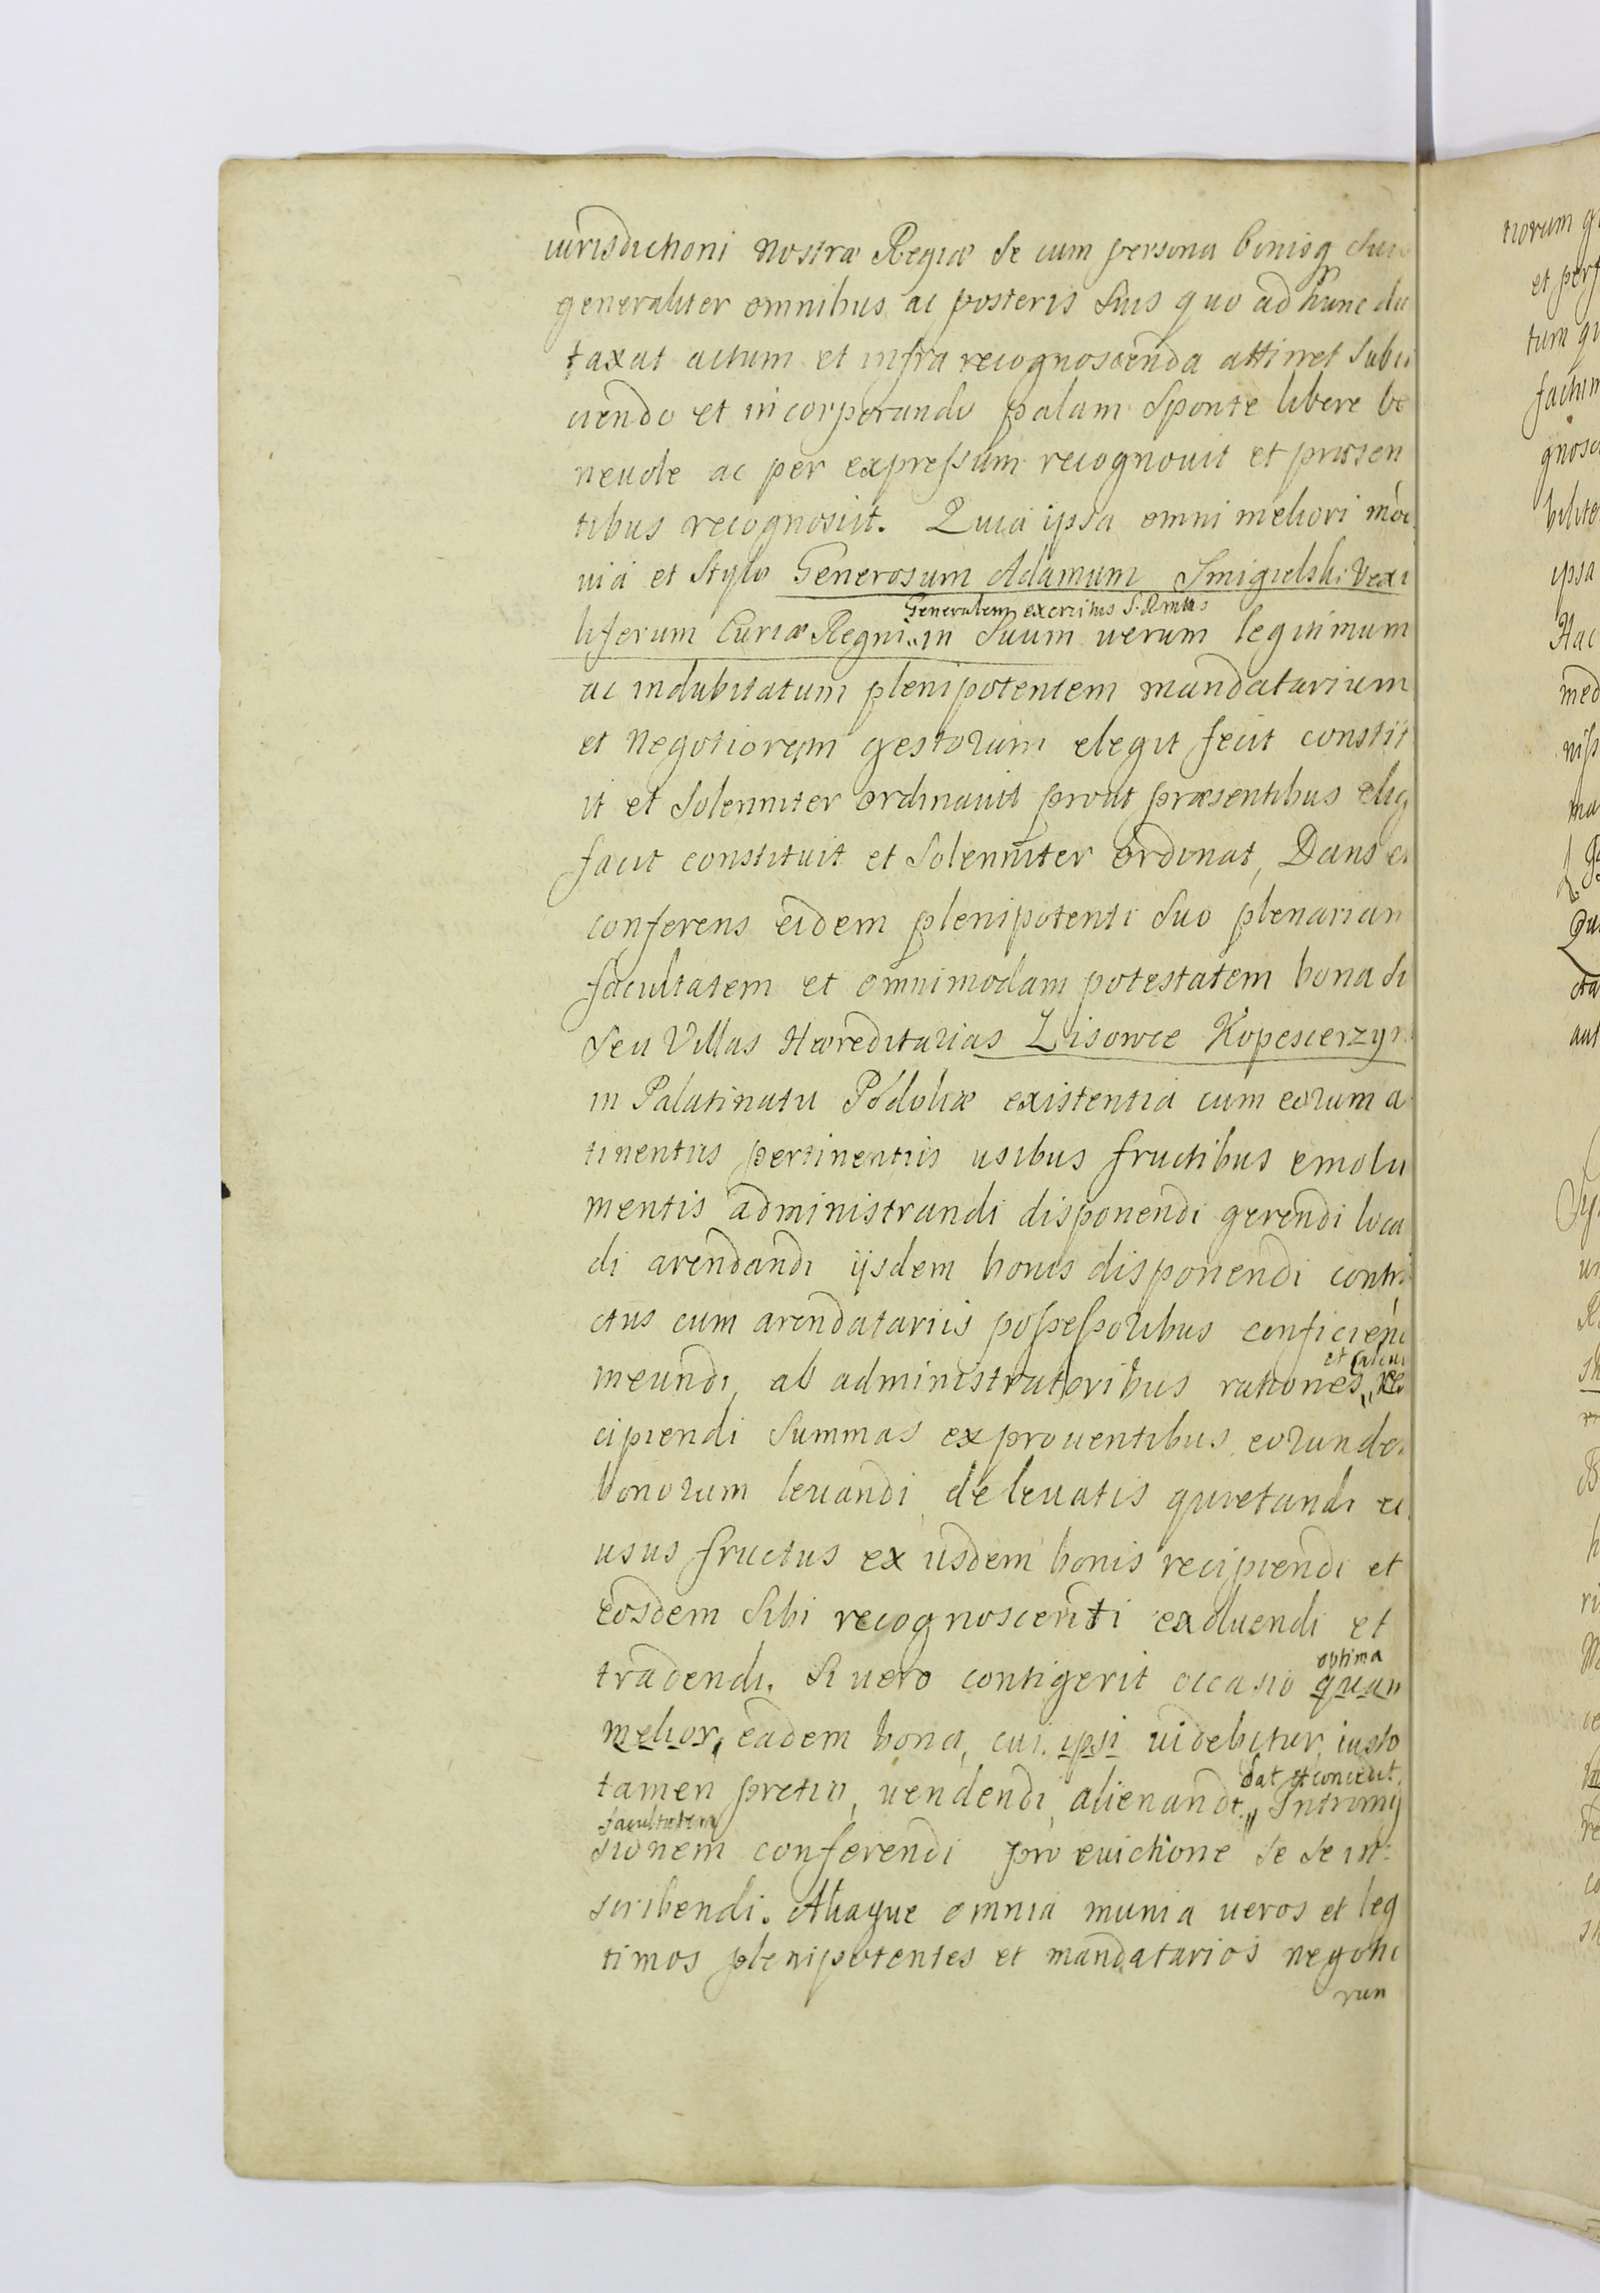 iurisdictioni nostræ Regiæ se cum persona bonisq suis
generaliter omnibus ac posteris suis quo ad hunc du
taxat actum et infra recognoscenda attinet subii
ciendo et incorporando palam sponte libere be
neuole ac per expressum recognouit et præsen
tibus recognoscit. Quia ipsa omni meliori mo
uia et stylo Generosum Adamum Smigielski Vexi
Generalem exercitus S. Rmtis
liferum Curiæ Regni in suum uerum legitimum
ac indubitatum plenipotentem mandatarium
et negotiorum gestorum elegit fecit constit
it et solenniter ordinauit prout præsentibus elig
facit constituit et solenniter ordinat, Dans et
conferens eidem plenipotenti suo plenariam
facultatem et omnimodam potestatem bona su
seu Villas Hæreditarias Lisowce Kopescierzyn
in Palatinatu Podoliæ existentia cum eorum a
tinentiis pertinentiis usibus fructibus emolu
mentis administrandi disponendi gerendi loca
di arendandi iisdem bonis disponendi contra
ctus cum arendatariis possessoribus conficien
et calcul
ineundi, ab administratoribus rationes re
cipiendi summas ex prouentibus eorunde
bonorum leuandi de leuatis quietandi et
usus fructus ex iisdem bonis recipiendi et
eosdem sibi recognoscenti exoluendi et
optima
tradendi. Si uero contigerit occasio quan
melior, eadem bona, cui ipsi uidebitur, iusto
dat et concedit
tamen pretio, uendendi alienandi Intromi
facultatem
sionem conferendi pro euictione se se in
scribendi. Aliaque omnia munia ueros et leg
timos plenipotentes et mandatarios negotio
rum
tiorum
tum
ipsa
Hac
med
ma
aut